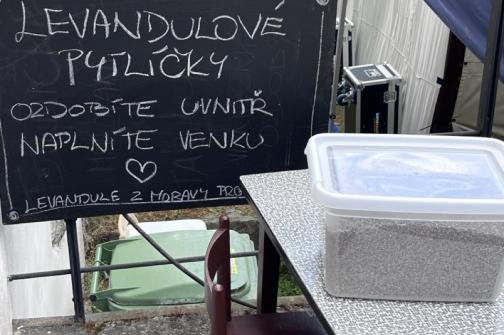 LEVANDULOVÉ
PYTLÍČKY
OZDOBÍTE UVNITŘ
NAPLNÍTE VENKU
LEVANDULE Z MORAVY